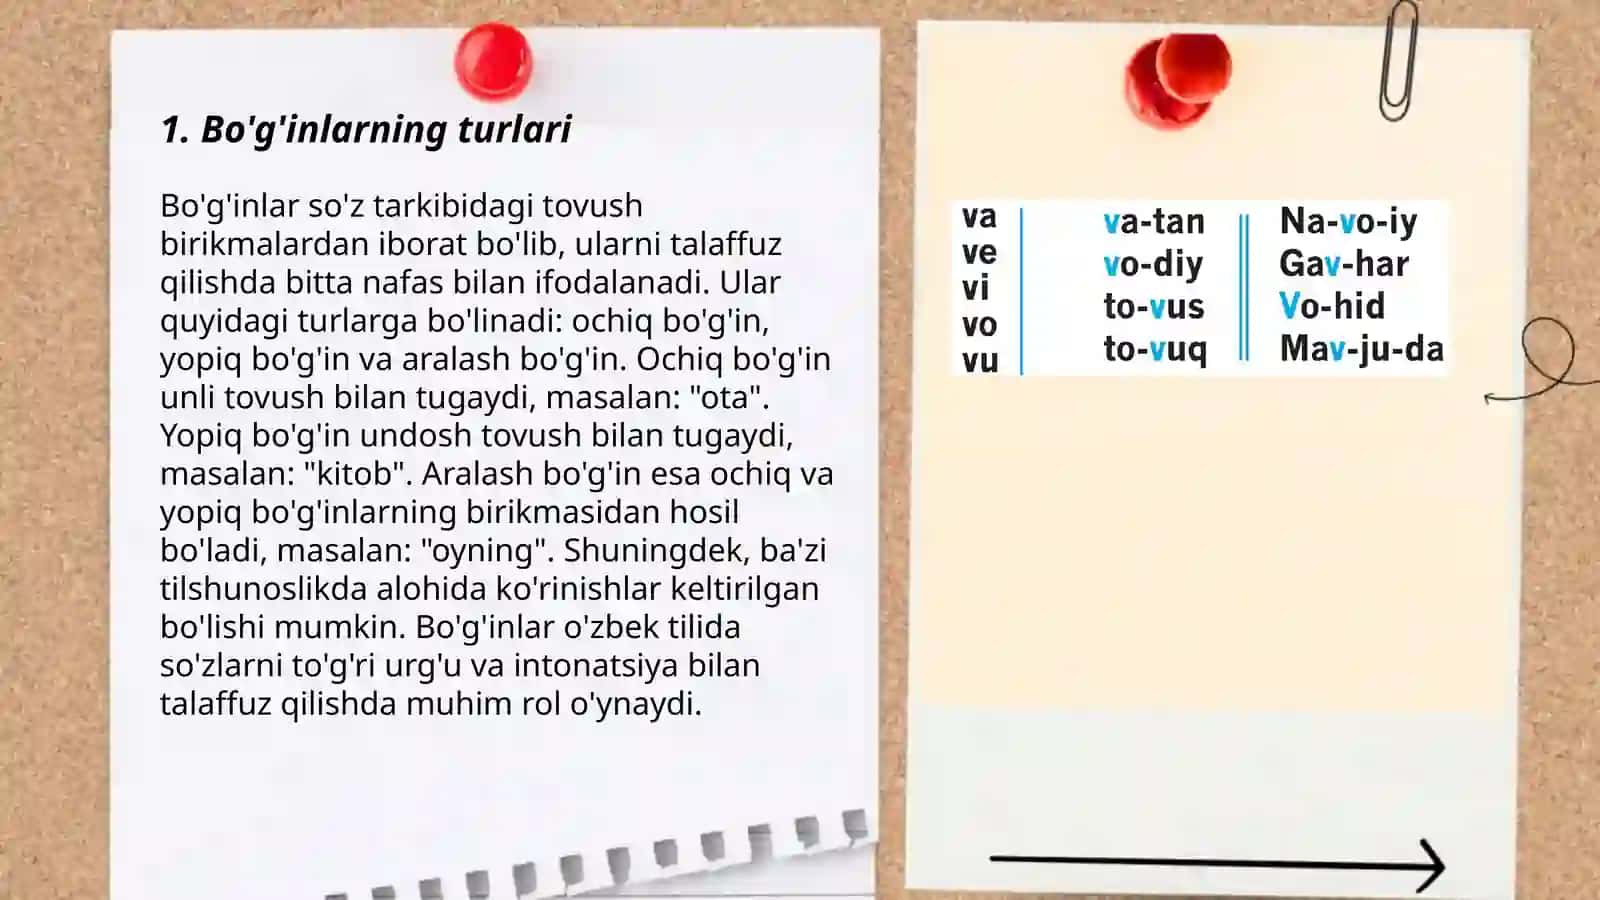 1. Bo'g'inlarning turlari
Bo'g'inlar so'z tarkibidagi tovush
birikmalardan iborat bo'lib, ularni talaffuz
qilishda bitta nafas bilan ifodalanadi. Ular
quyidagi turlarga bo'linadi: ochiq bo'g'in,
yopiq bo'g'in va aralash bo'g'in. Ochiq bo'g'in
unli tovush bilan tugaydi, masalan: "ota".
Yopiq bo'g'in undosh tovush bilan tugaydi,
masalan: "kitob". Aralash bo'g'in esa ochiq va
yopiq bo'g'inlarning birikmasidan hosil
bo'ladi, masalan: "oyning". Shuningdek, ba'zi
tilshunoslikda alohida ko'rinishlar keltirilgan
bo'lishi mumkin. Bo'g'inlar o'zbek tilida
so'zlarni to'g'ri urg'u va intonatsiya bilan
talaffuz qilishda muhim rol o'ynaydi.
va
ve
vi
vo
vu
va-tan
vo-diy
to-vus
to-vuq
Na-vo-iy
Gav-har
Vo-hid
Mav-ju-da